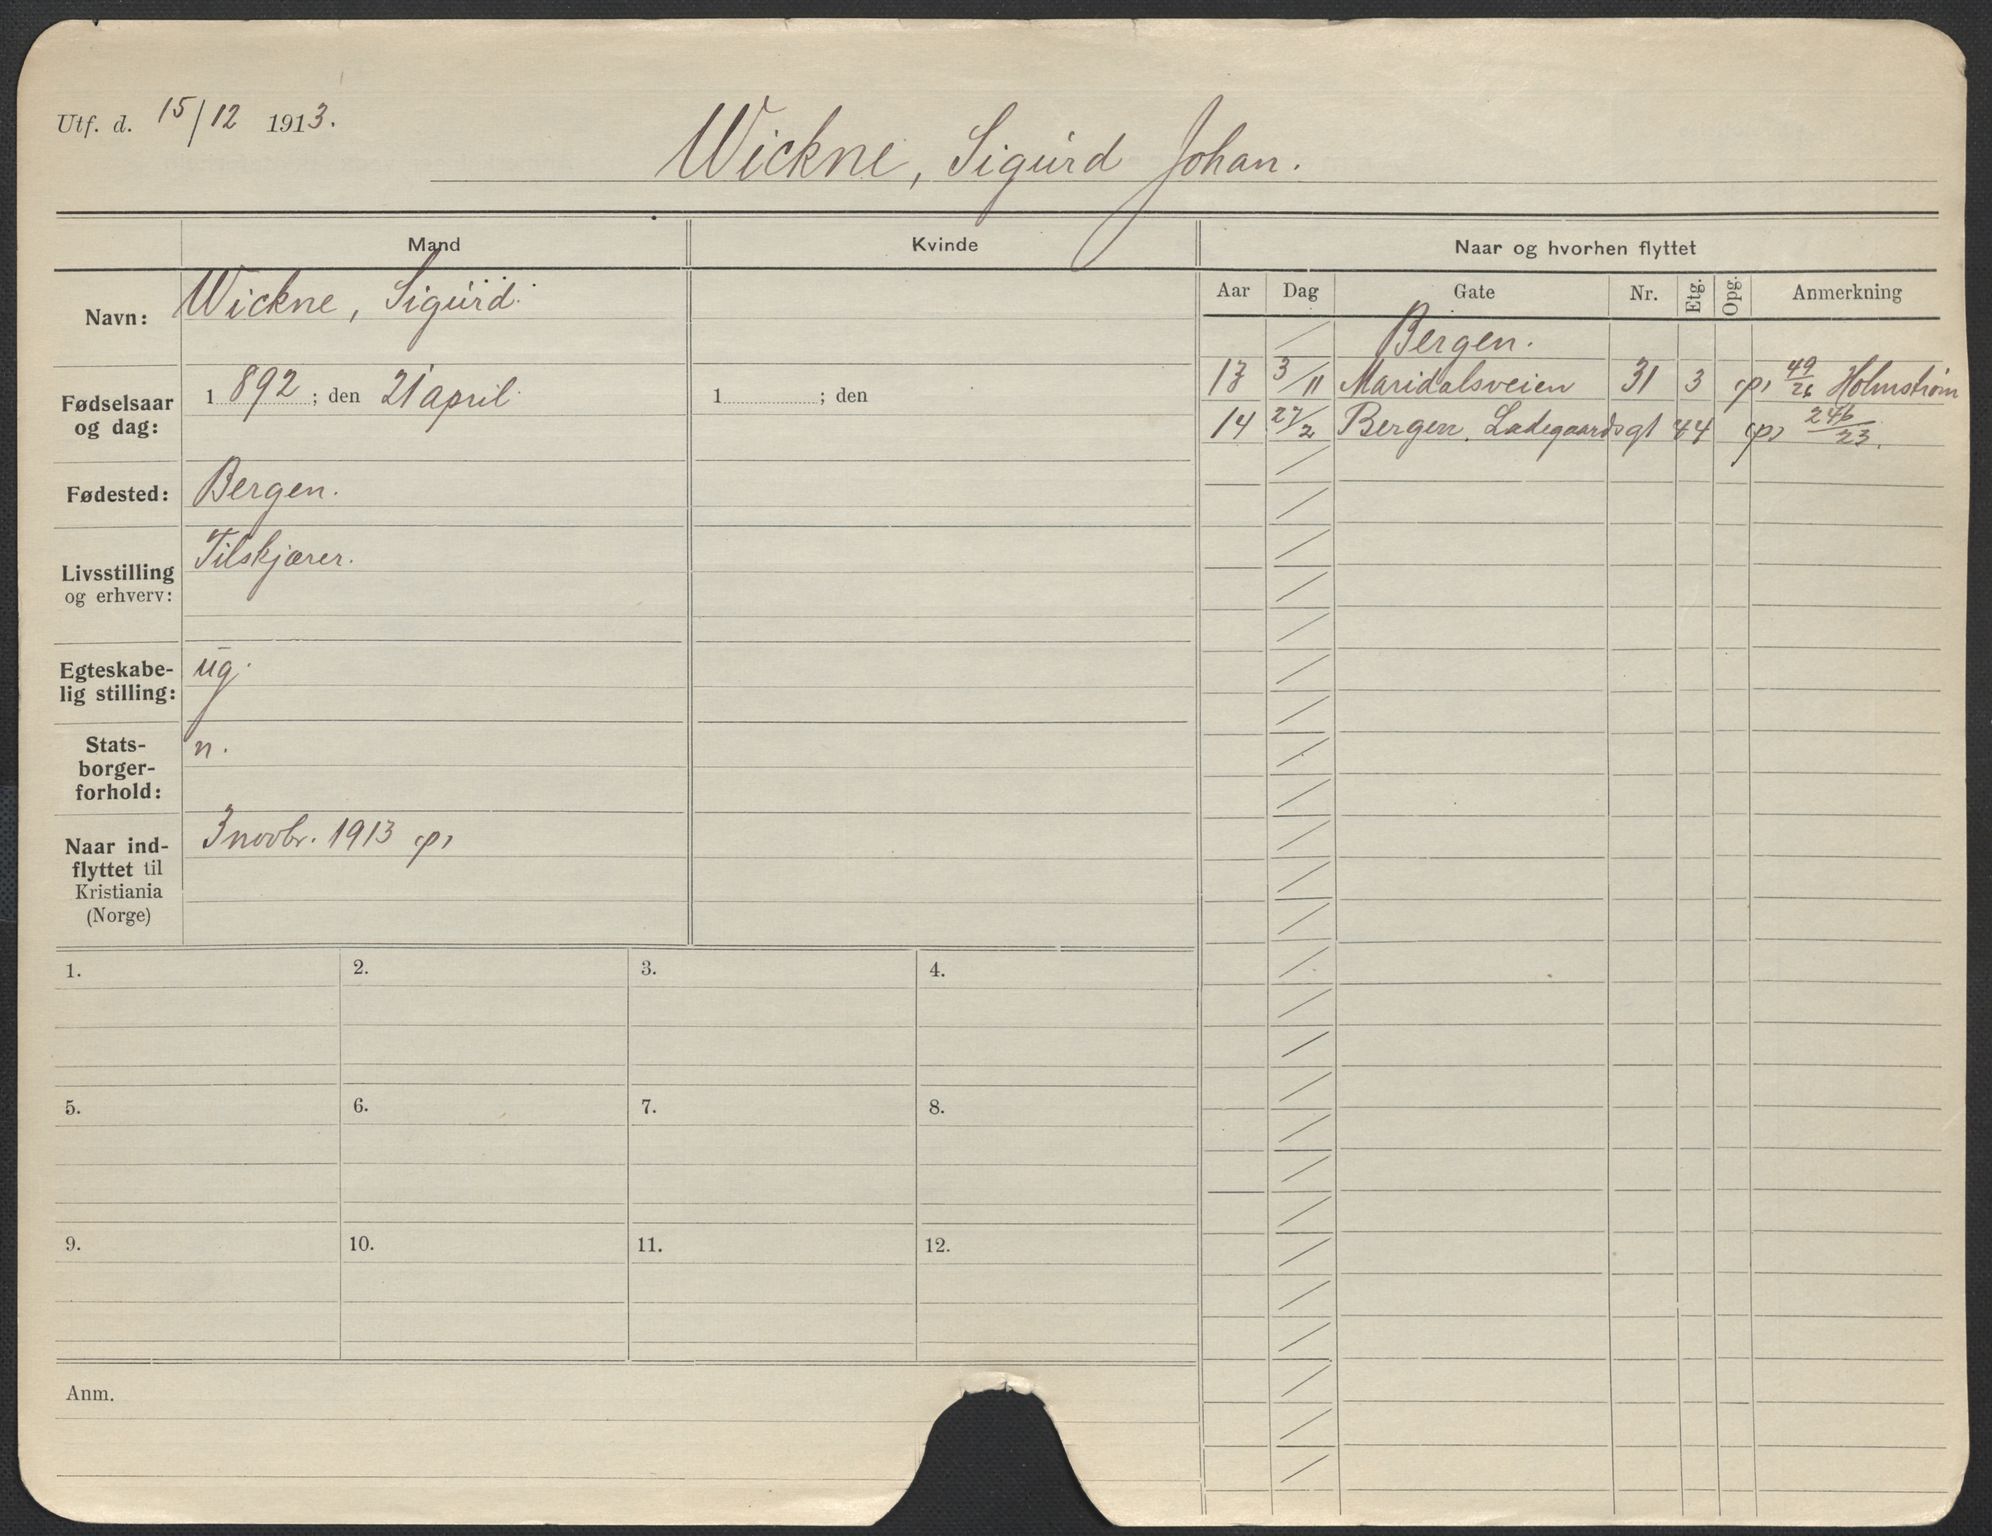 Utf. d. 15/12 1913.
Wickne, Sigurd Johan.
Mand
Kvinde
Naar og hvorhen flyttet
Navn: Wickne, Sigurd.
Fødselsaar og dag: 1892; den 21 april.
1 ; den
Fødested: Bergen.
Livsstilling og erhverv: Tilskjærer.
Egteskabe-
lig stilling: ug.
Stats-
borger-
forhold: n.
Naar ind-
flyttet til
Kristiania
(Norge)
3 novbr. 1913 (p)
Aar Dag Gate Nr. Etg. Opg. Anmerkning
Bergen.
13 3/11 Maridalsveien 31 3 (p) 49/26 Holmstrøm
14 27/2 Bergen, Ladegaardsgt 44 (p) 246/23.
1. 2. 3. 4.
5. 6. 7. 8.
9. 10. 11. 12.
Anm.